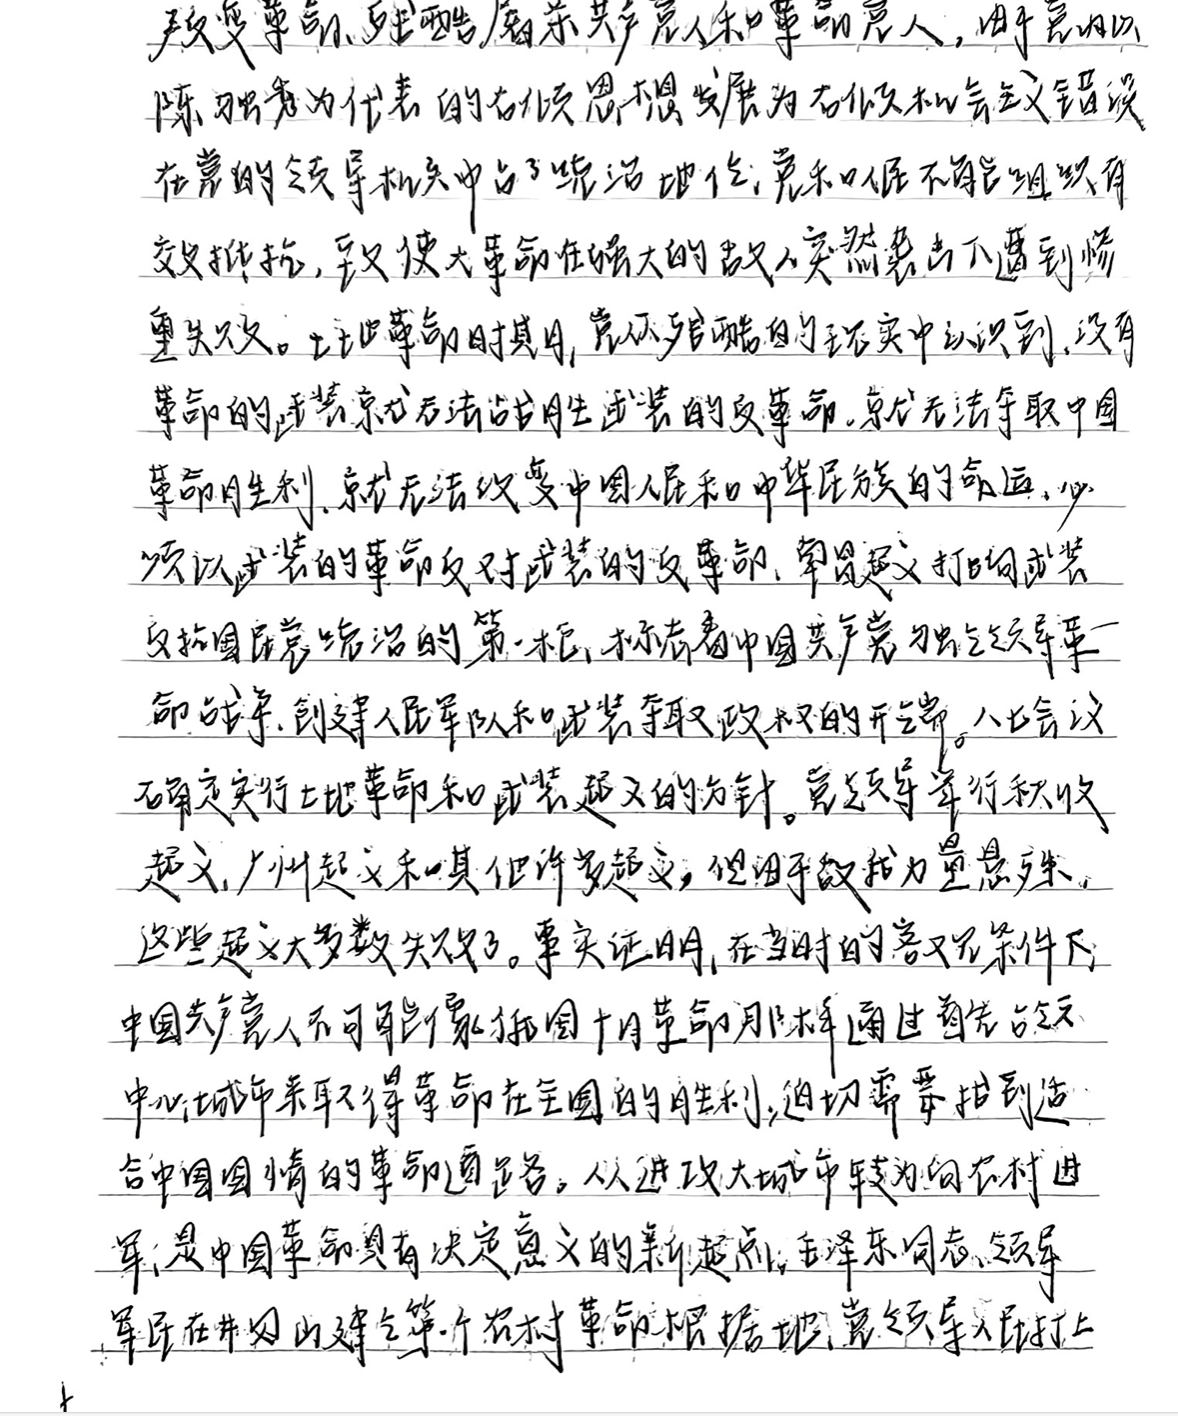 叛变革命,残酷屠杀共产党人和革命党人,由于党内以
陈独秀为代表的右倾思想发展为右倾机会主义错误
在党的领导机关中占了统治地位,党和人民不能组织有
效抵抗,致使大革命在强大的敌人突然袭击下遭到惨
重失败。土地革命时期,党从残酷的现实中认识到,没有
革命的武装就无法战胜武装的反革命,就无法夺取中国
革命胜利,就无法改变中国人民和中华民族的命运,必
须以武装的革命反对武装的反革命,南昌起义打响武装
反抗国民党统治的第一枪,标志着中国共产党独立领导革
命战争、创建人民军队和武装夺取政权的开端。八七会议
确定实行土地革命和武装起义的方针。党领导举行秋收
起义,广州起义和其他许多起义,但由于敌我力量悬殊,
这些起义大多数失败了。事实证明,在当时的客观条件下,
中国共产党人不可能像俄国十月革命那样通过首先占领
中心城市来取得革命在全国的胜利,迫切需要找到适
合中国国情的革命道路。从进攻大城市转为向农村进
军,是中国革命具有决定意义的新起点,毛泽东同志领导
军民在井冈山建立第一个农村革命根据地,党领导人民打土